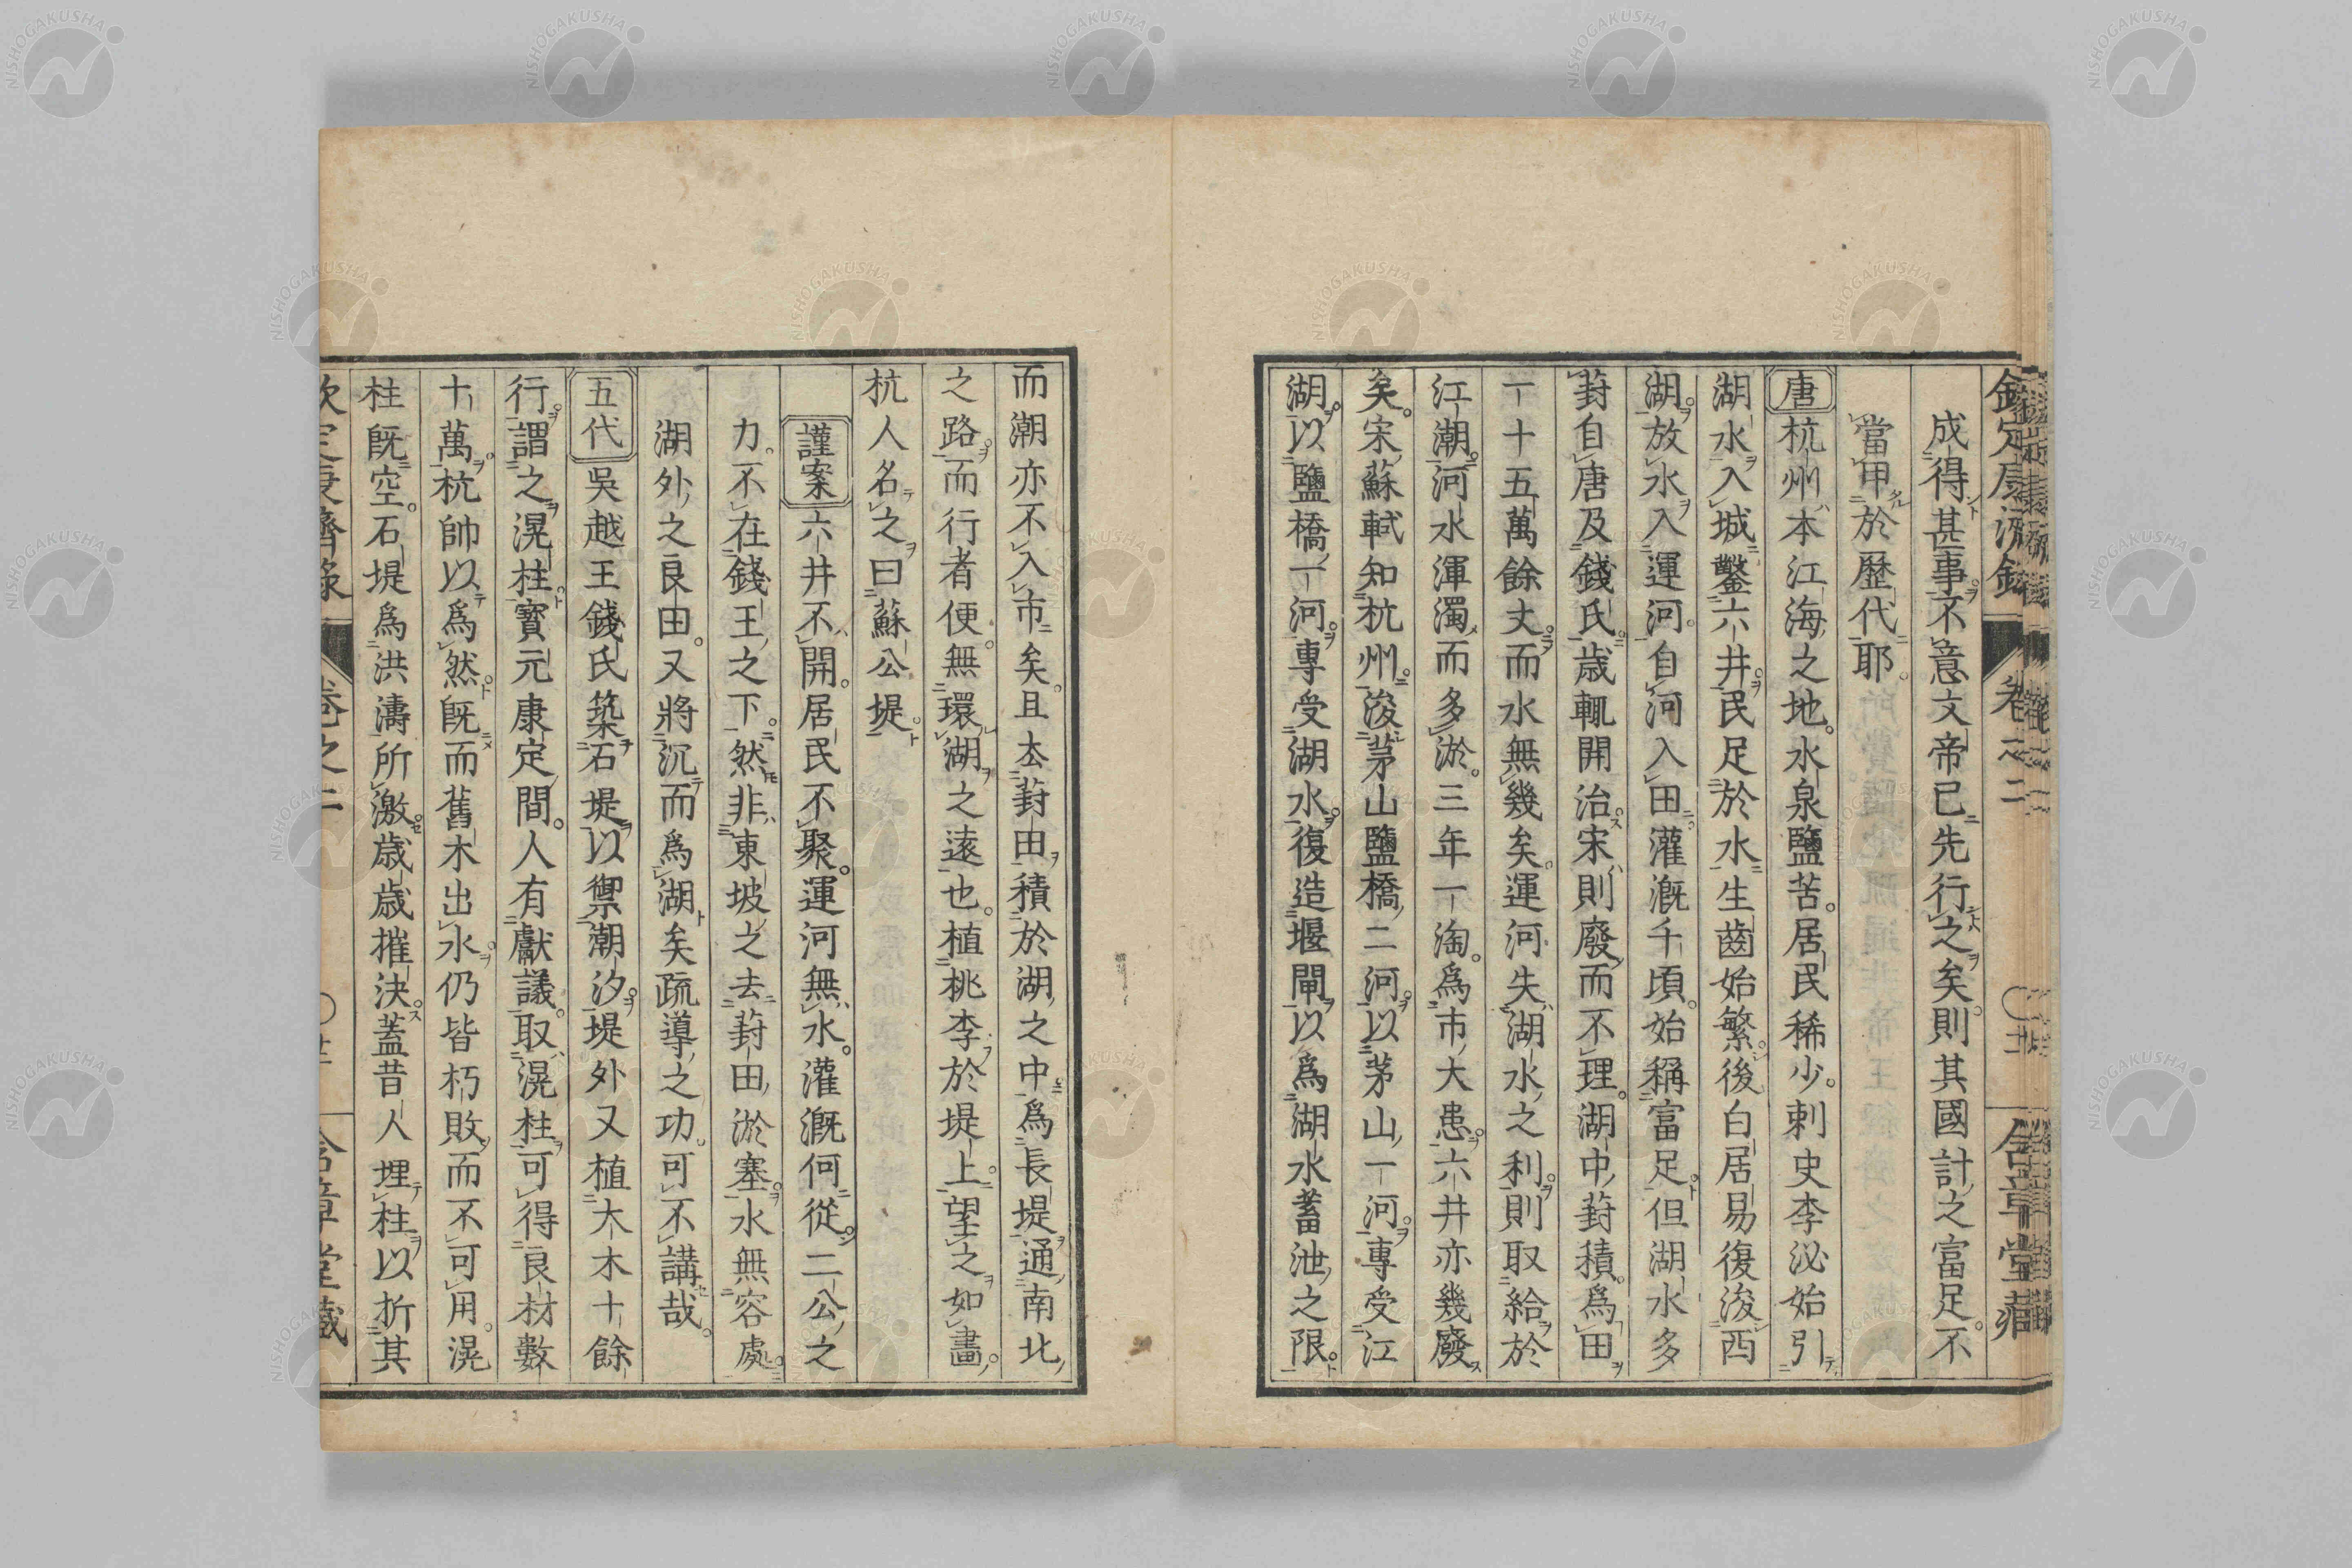 欽定康濟錄 卷之二 ○廿 含章堂藏
成得甚事不意文帝已先行之矣則其國計之富足不
當甲於歷代耶
唐 杭州本江海之地水泉鹽苦居民稀少刺史李泌始引
湖水入城鑿六井民足於水生齒始繁後白居易復浚西
湖放水入運河自河入田灌溉千頃始稱富足但湖水多
葑自唐及錢氏歲輒開治宋則廢而不理湖中葑積爲田
一十五萬餘丈而水無幾矣運河失湖水之利則取給於
江潮河水渾濁而多淤三年一淘爲市大患六井亦幾廢
矣宋蘇軾知杭州浚茅山鹽橋二河以茅山一河專受江
湖以鹽橋一河專受湖水復造堰閘以爲湖水蓄泄之限
而潮亦不入市矣且去葑田積於湖之中爲長堤通南北
之路而行者便無環湖之遠也植桃李於堤上望之如畵
杭人名之曰蘇公堤
謹案 六井不開居民不聚運河無水灌溉何從二公之
力不在錢王之下然非東坡之去葑田淤塞水無容處
湖外之良田又將沉而爲湖矣疏導之功可不講哉
五代 吳越王錢氏築石堤以禦潮汐堤外又植大木十餘
行謂之滉柱寶元康定間人有獻議取滉柱可得良材數
十萬杭帥以爲然既而舊木出水仍皆朽敗而不可用滉
柱既空石堤爲洪濤所激歲歲摧決蓋昔人埋柱以折其
欽定康濟錄 卷之二 ○廿 含章堂藏
NISHOGAKUSHA